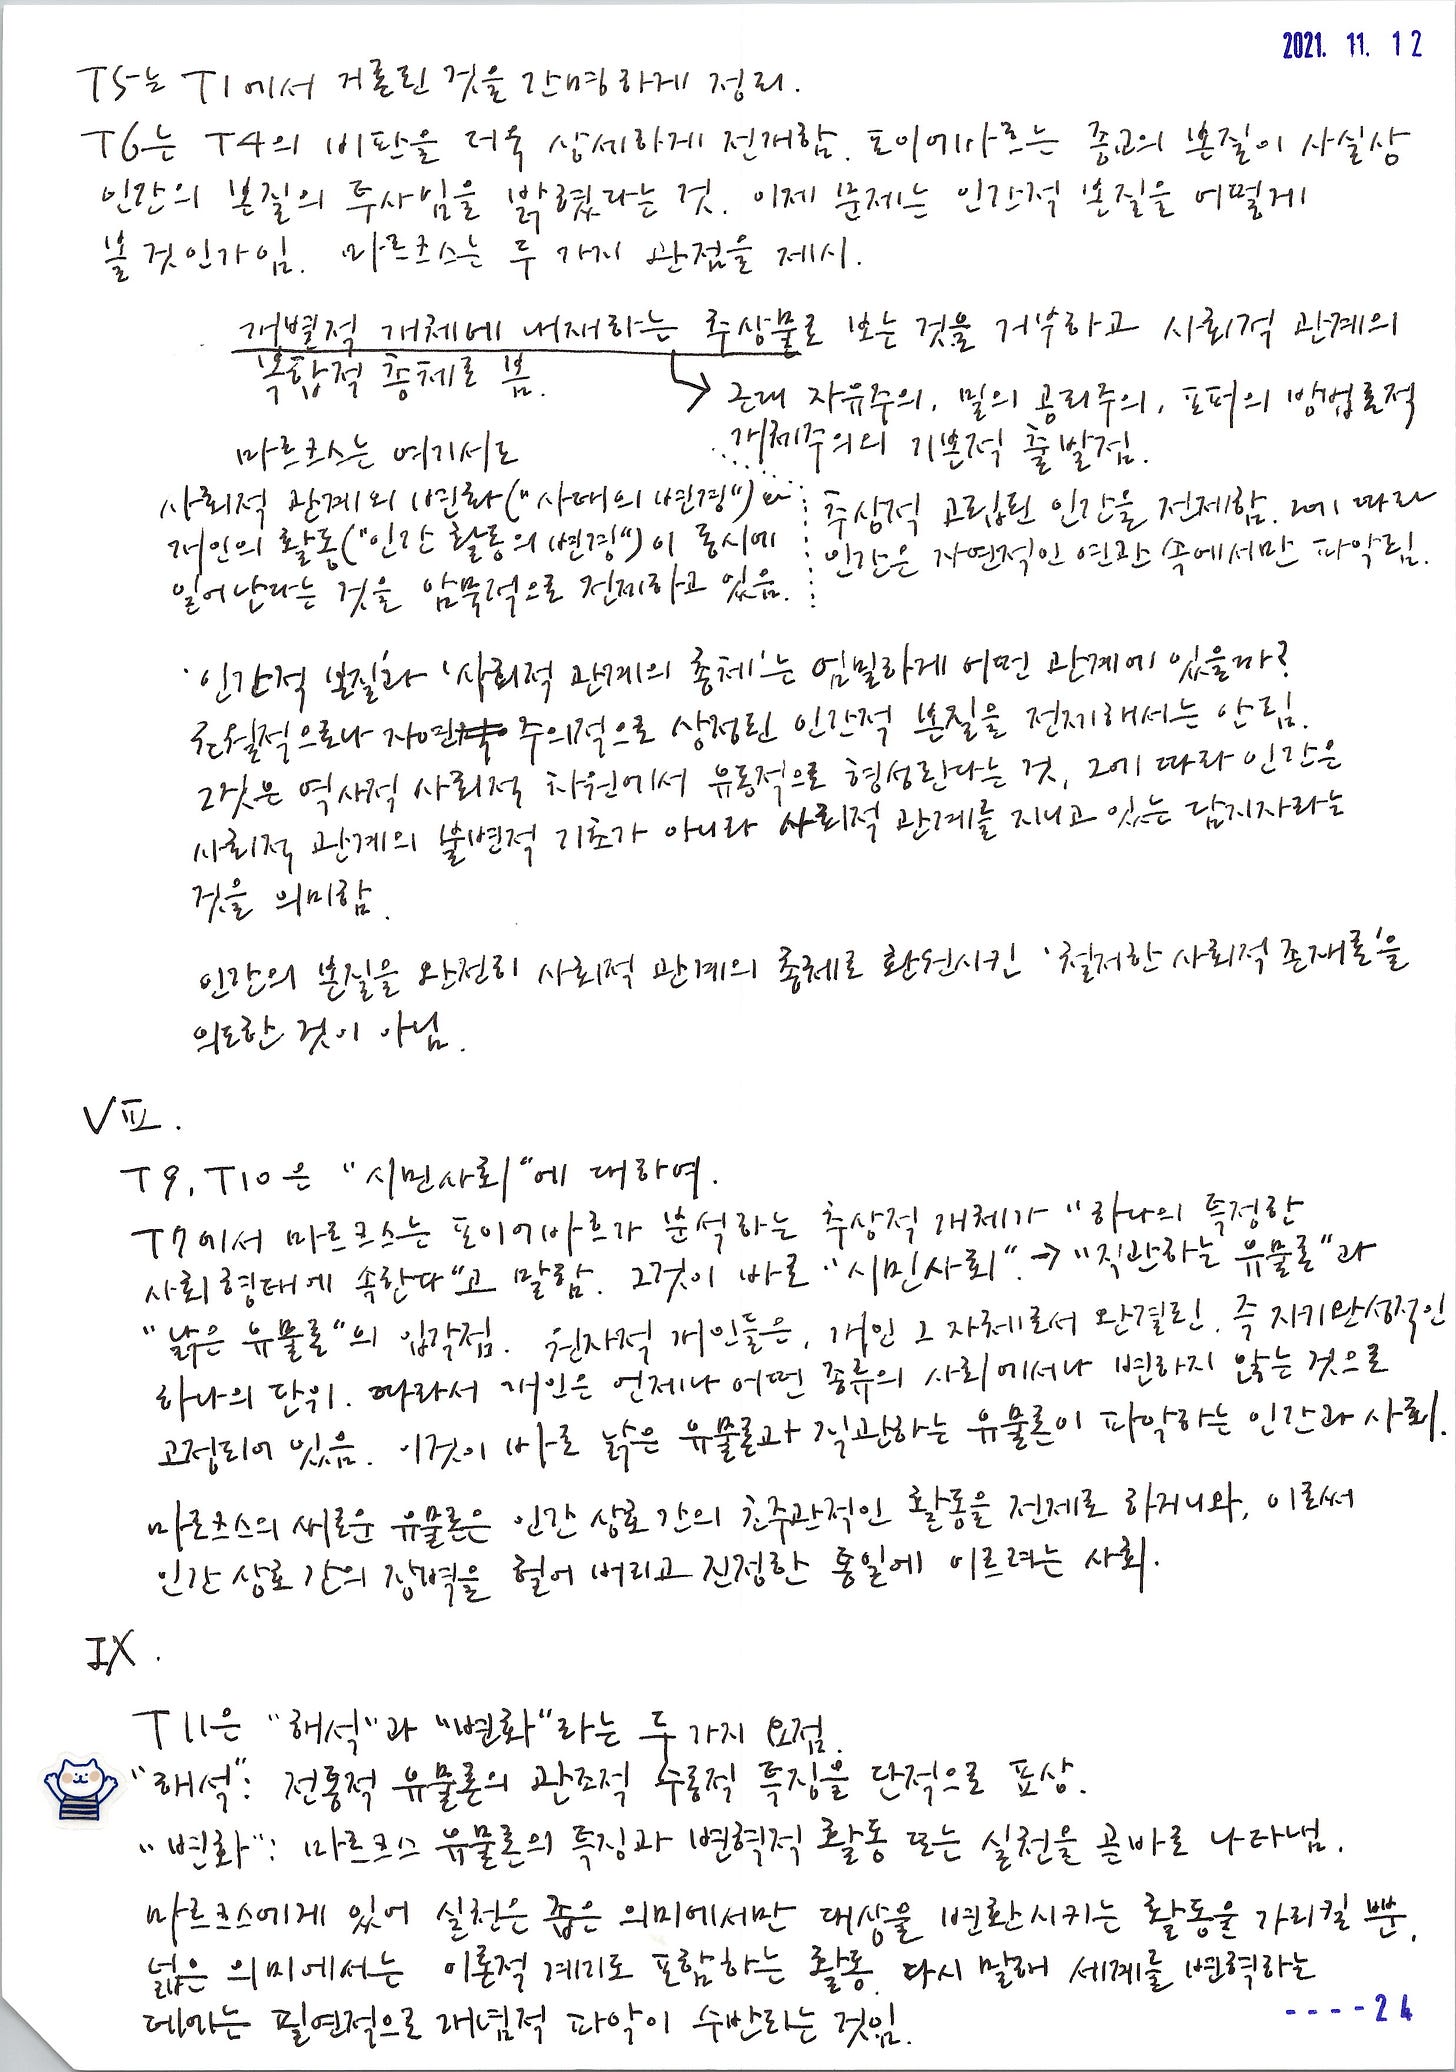 2021. 11. 12
T5는 T1에서 거론된 것을 간명하게 정리.
T6는 T4의 비판을 더욱 상세하게 전개함. 포이에바르는 종교의 본질이 사실상
인간의 본질의 투사임을 밝혔다는 것. 이제 문제는 인간적 본질을 어떻게
볼 것인가임. 마르크스는 두 가지 관점을 제시.
개별적 개체에 내재하는 추상물로 보는 것을 거부하고 사회적 관계의
복합적 총체로 봄.
→ 근대 자유주의, 밀의 공리주의, 포퍼의 방법론적
개체주의의 기본적 출발점.
마르크스는 여기서도
사회적 관계의 변화("사태의 변경")와
개인의 활동("인간 활동의 변경")이 동시에
일어난다는 것을 암묵적으로 전제하고 있음.
추상적 고립된 인간을 전제함. 그에 따라
인간은 자연적인 연관 속에서만 파악됨.
'인간적 본질'과 '사회적 관계의 총체'는 엄밀하게 어떤 관계에 있을까?
초월적으로나 자연주의적으로 상정된 인간적 본질을 전제해서는 안됨.
그것은 역사적 사회적 차원에서 유동적으로 형성된다는 것, 그에 따라 인간은
사회적 관계의 불변적 기초가 아니라 사회적 관계를 지니고 있는 담지자라는
것을 의미함.
인간의 본질을 완전히 사회적 관계의 총체로 환원시킨 '철저한 사회적 존재론'을
의도한 것이 아님.
VIII.
T9, T10은 "시민사회"에 대하여.
T7에서 마르크스는 포이어바르가 분석하는 추상적 개체가 "하나의 특정한
사회형태에 속한다"고 말함. 그것이 바로 "시민사회". → "직관하는 유물론"과
"낡은 유물론"의 입각점. 원자적 개인들은, 개인 그 자체로서 완결된, 즉 자기완성적인
하나의 단위. 따라서 개인은 언제나 어떤 종류의 사회에서나 변하지 않는 것으로
고정되어 있음. 이것이 바로 낡은 유물론과 직관하는 유물론이 파악하는 인간과 사회.
마르크스의 새로운 유물론은 인간 상호 간의 간주관적인 활동을 전제로 하거니와, 이로써
인간 상호 간의 장벽을 헐어 버리고 진정한 통일에 이르려는 사회.
IX.
T11은 "해석"과 "변화"라는 두 가지 요점.
"해석": 전통적 유물론의 관조적 수동적 특징을 단적으로 표상.
"변화": 마르크스 유물론의 특징과 변혁적 활동 또는 실천을 곧바로 나타냄.
마르크스에게 있어 실천은 좁은 의미에서만 대상을 변환시키는 활동을 가리킬 뿐,
넓은 의미에서는 이론적 계기도 포함하는 활동. 다시 말해 세계를 변혁하는
데에는 필연적으로 개념적 파악이 수반되는 것임.
----24